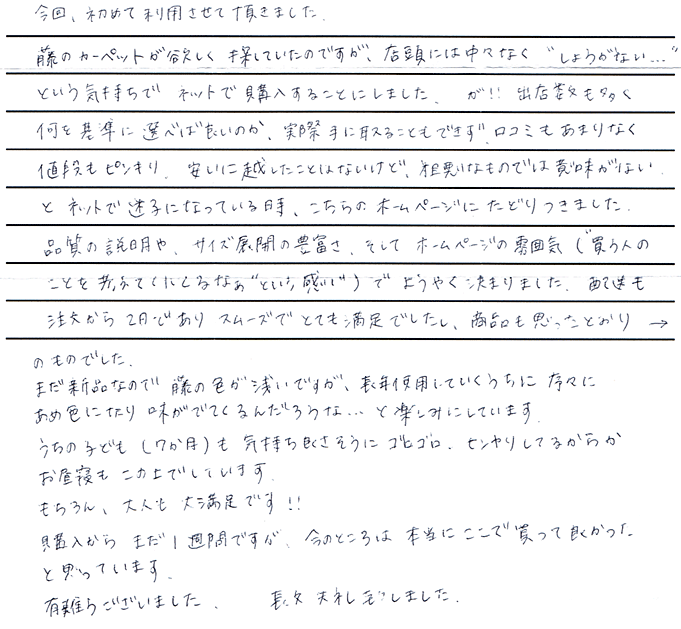 今回、初めて利用させて頂きました.
藤のカーペットが欲しく探していたのですが、店頭には中々なく “しょうがない…”
という気持ちで ネットで購入することにしました. が!! 出店数も多く
何を基準に選べば良いのか、実際手に取ることもできず、口コミもあまりなく
値段もピンキリ. 安いに越したことはないけど、粗悪なものでは意味がない.
と ネットで迷子になっている時、こちらのホームページにたどりつきました.
品質の説明や、サイズ展開の豊富さ、そして ホームページの雰囲気(“買う人の
ことを考えてくれてるなぁ”という感じ)で ようやく決まりました. 配送も
注文から2日であり スムーズでとても満足でしたし、商品も思ったとおり →
のものでした.
まだ新品なので 藤の色が浅いですが、長年使用していくうちに 序々に
あめ色になり 味がでてくるんだろうな… と楽しみにしています.
うちの子ども(7か月)も 気持ち良さそうに ゴロゴロ. ヒンヤリしてるからか
お昼寝も この上でしています.
もちろん、大人も 大満足です!!
購入から まだ1週間ですが、今のところは 本当に ここで買って良かった
と思っています.
有難うございました. 長文 失礼しました.